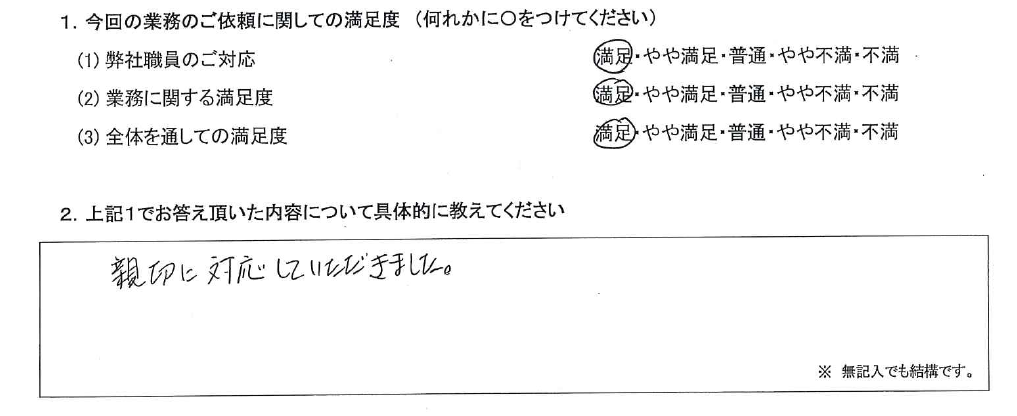 1. 今回の業務のご依頼に関しての満足度 （何れかに〇をつけてください）
(1) 弊社職員のご対応 満足・やや満足・普通・やや不満・不満
(2) 業務に関する満足度 満足・やや満足・普通・やや不満・不満
(3) 全体を通しての満足度 満足・やや満足・普通・やや不満・不満
2. 上記1でお答え頂いた内容について具体的に教えてください
親切に対応していただきました。
※ 無記入でも結構です。